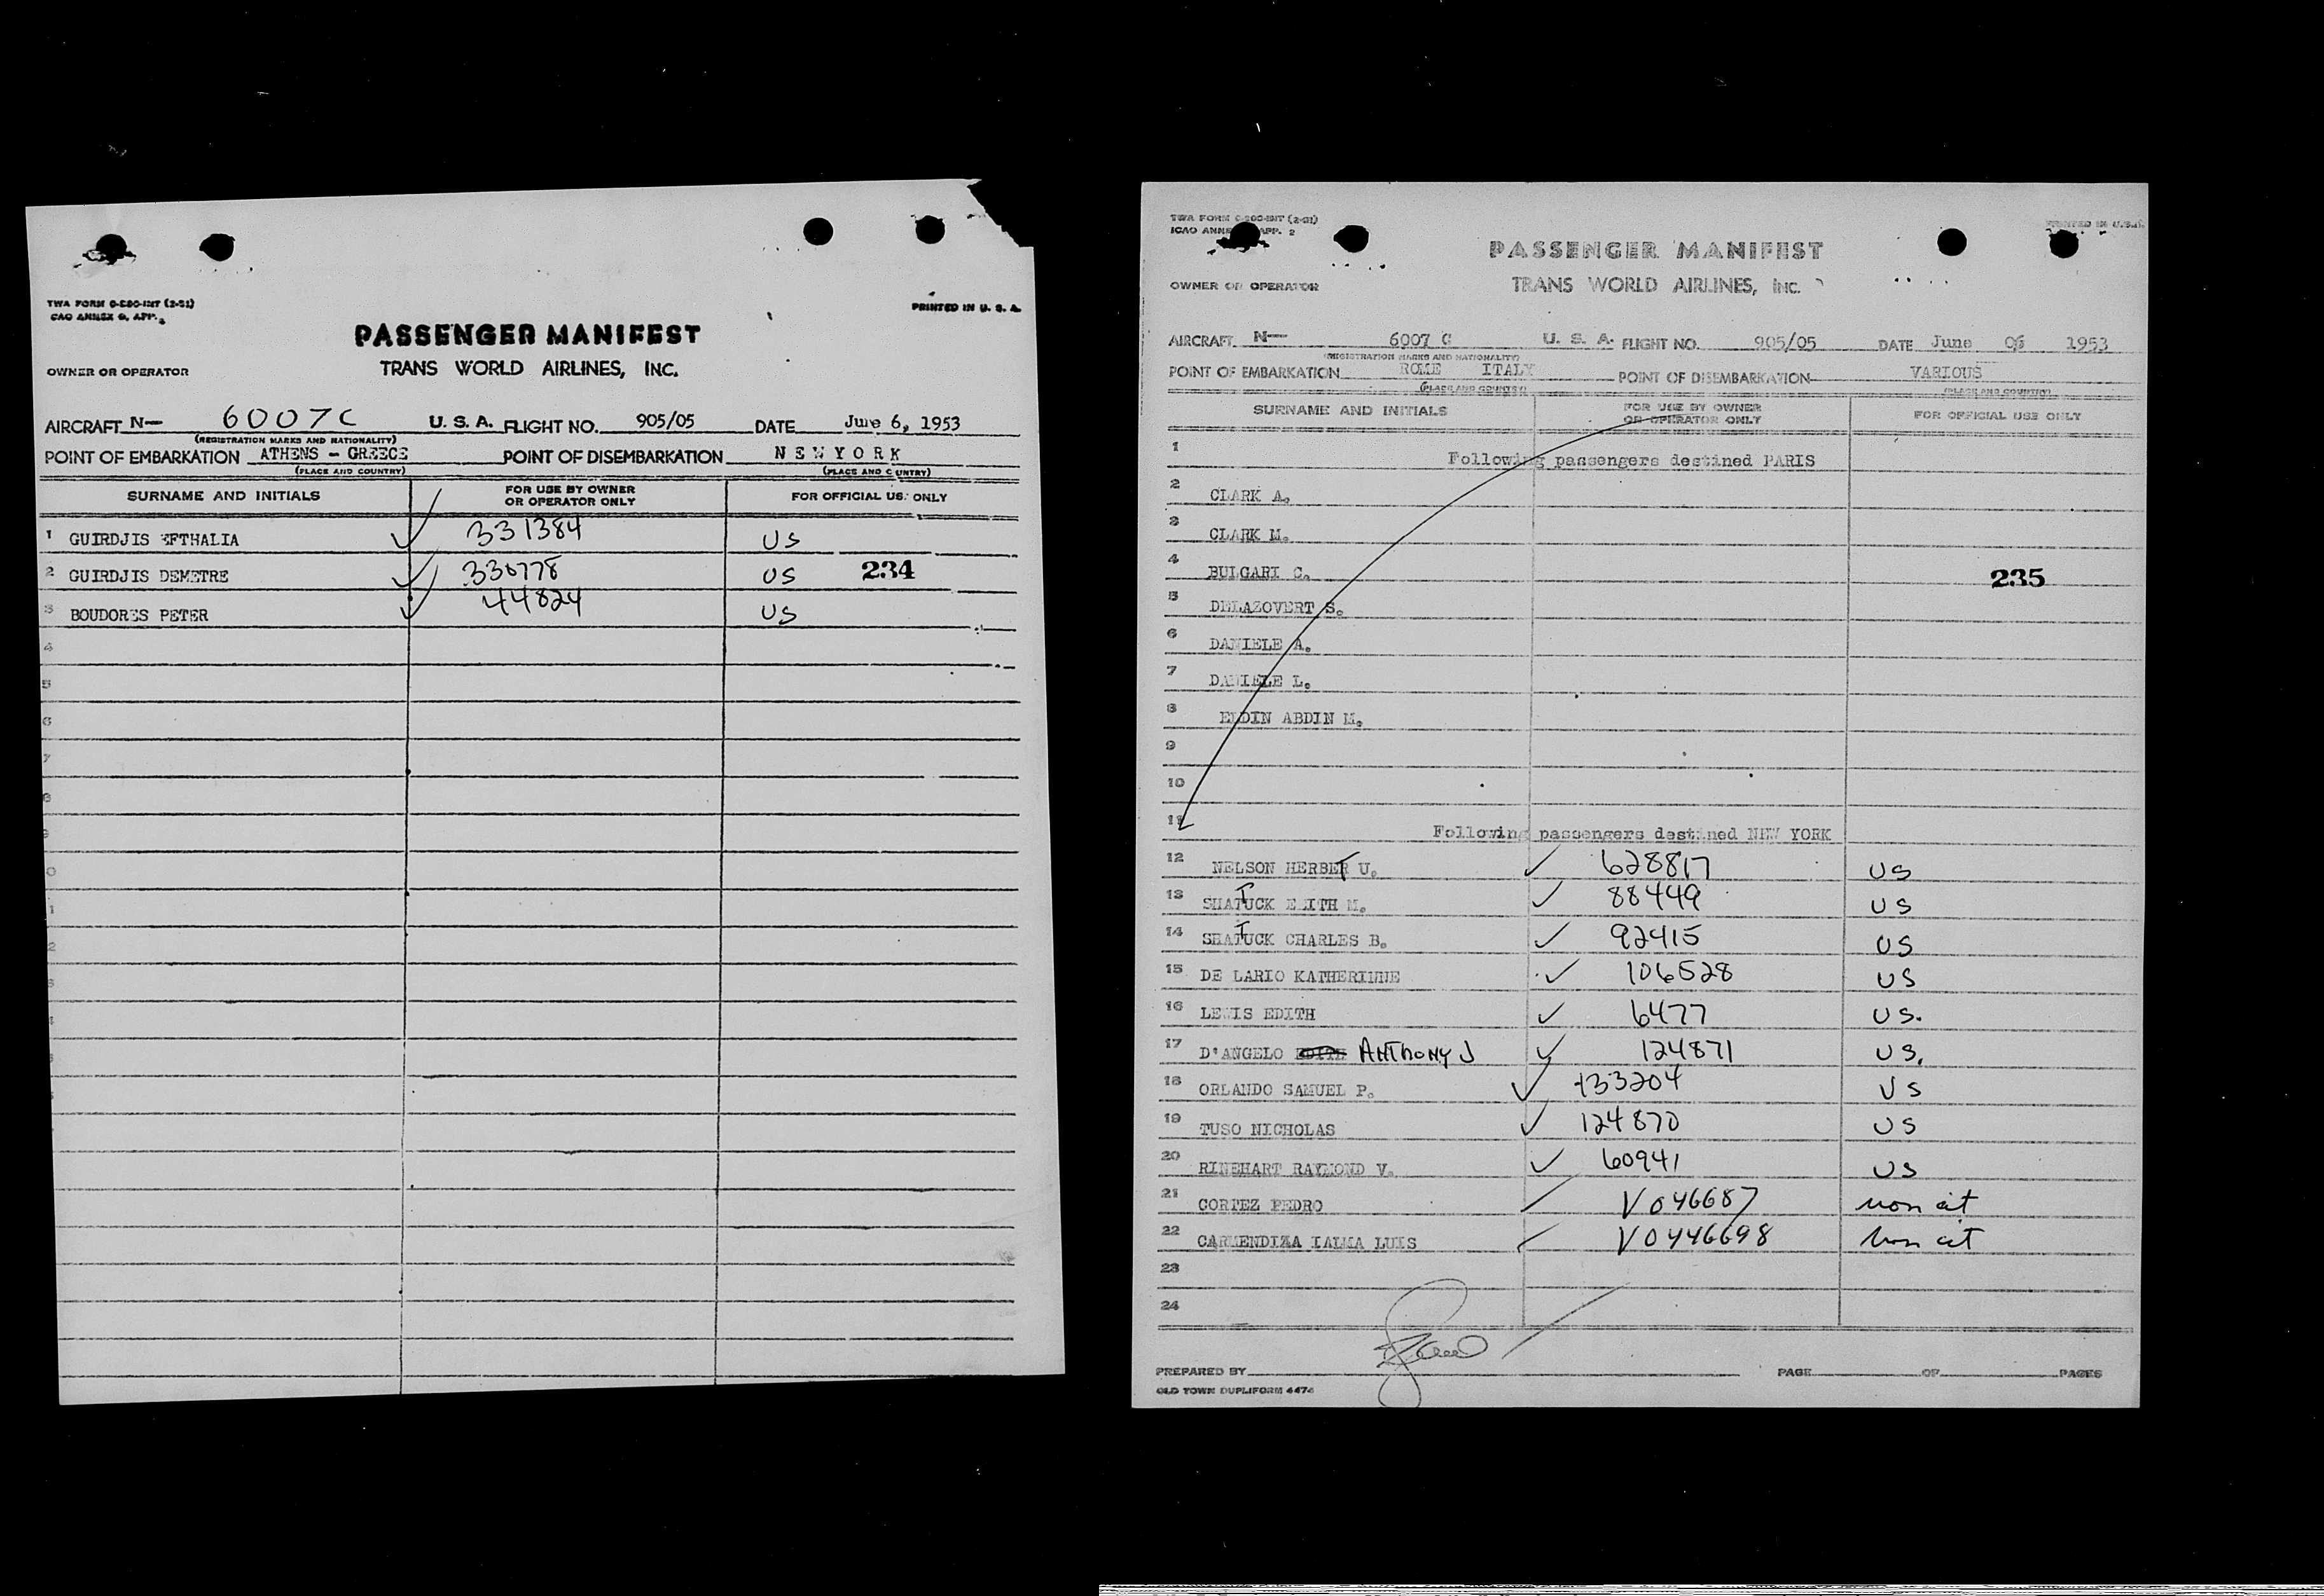 TWA FORM O-200-INT (2-51)
CAO ANNEX 9, APP. 2
PRINTED IN U. S. A.
PASSENGER MANIFEST
OWNER OR OPERATOR TRANS WORLD AIRLINES, INC.
AIRCRAFT N— 6007C U. S. A. FLIGHT NO. 905/05 DATE June 6, 1953
(REGISTRATION MARKS AND NATIONALITY)
POINT OF EMBARKATION ATHENS - GREECE POINT OF DISEMBARKATION NEW YORK
(PLACE AND COUNTRY) (PLACE AND C UNTRY)
SURNAME AND INITIALS FOR USE BY OWNER OR OPERATOR ONLY FOR OFFICIAL US. ONLY
1 GUIRDJIS EFTHALIA 331384 US
2 GUIRDJIS DEMETRE 330778 US 234
3 BOUDORES PETER 44824 US
4
5
6
7
8
9
0
1
2
3
TWA FORM O-200-INT (2-51)
ICAO ANNE APP. 2
PRINTED IN U.S.A.
PASSENGER MANIFEST
OWNER OR OPERATOR TRANS WORLD AIRLINES, INC.
AIRCRAFT N— 6007 C U. S. A. FLIGHT NO. 905/05 DATE June 06 1953
(REGISTRATION MARKS AND NATIONALITY)
POINT OF EMBARKATION ROME ITALY POINT OF DISEMBARKATION VARIOUS
(PLACE AND COUNTRY) (PLACE AND COUNTRY)
SURNAME AND INITIALS FOR USE BY OWNER OR OPERATOR ONLY FOR OFFICIAL USE ONLY
1 Following passengers destined PARIS
2 CLARK A.
3 CLARK M.
4 BULGARI C. 235
5 DELAZOVERT S.
6 DANIELE A.
7 DANIELE L.
8 ELDIN ABDIN M.
9
10
11 Following passengers destined NEW YORK
12 NELSON HERBERT U. 628817 US
13 SHATTUCK EDITH M. 88449 US
14 SHATTUCK CHARLES B. 92415 US
15 DE LARIO KATHERINNE 106528 US
16 LEWIS EDITH 6477 US.
17 D'ANGELO EDITH ANTHONY J 124871 US.
18 ORLANDO SAMUEL P. 133204 US
19 TUSO NICHOLAS 124870 US
20 RINEHART RAYMOND V. 60941 US
21 CORTEZ PEDRO V046687 non cit
22 LUIS V0446698 non cit
23
24
PREPARED BY PAGE OF PAGES
OLD TOWN DUPLIFORM 4474